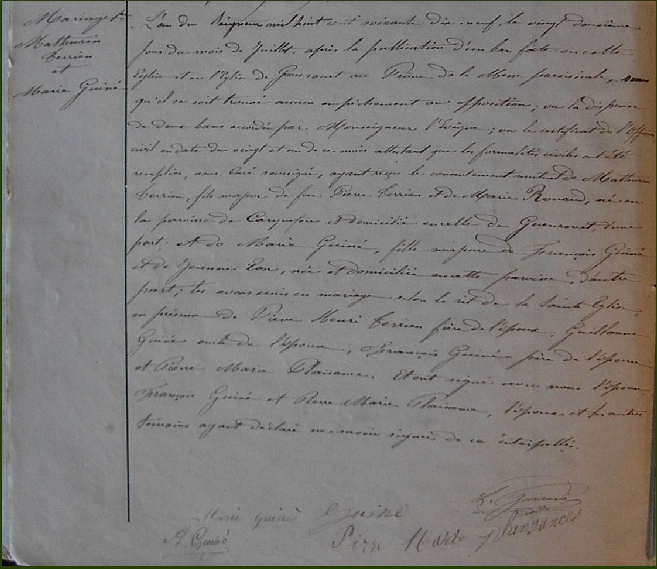 Mariage de
Mathurin
Terrien
et
Marie Guiné
L'an du Seigneur mil huit cent soixante dix neuf, le vingt deuxième
jour du mois de Juillet, après la publication d'un ban faite en cette
Eglise et en l'Eglise de au Prône de la Messe paroissiale, sans
qu'il se soit trouvé aucun empêchement ou opposition; vu la dispense
de deux bans accordée par Monseigneur l'Evêque; vu le certificat de l'Officier
civil en date du vingt et un de ce mois attestant que les formalités civiles ont été
remplies, nous Curé soussigné, ayant reçu le consentement mutuel de Mathurin
Terrien, fils majeur de feu Pierre Terrien et de Marie Renaud, né en
la paroisse de et domicilié en celle de d'une
part, et de Marie Guiné, fille majeure de François Guiné
et de Jeanne Eon, née et domiciliée en cette paroisse, d'autre
part, les avons unis en mariage selon le rit de la Sainte Eglise,
en présence de Henri Terrien frère de l'époux, Guillaume
Guiné oncle de l'épouse, François Guiné père de l'épouse
et Pierre Marie. Et ont signé avec nous l'épouse,
François Guiné et Pierre Marie, l'époux et les autres
témoins ayant déclaré ne savoir signer de ce interpellés.
Marie guiné guiné
Guiné Pierre Marie